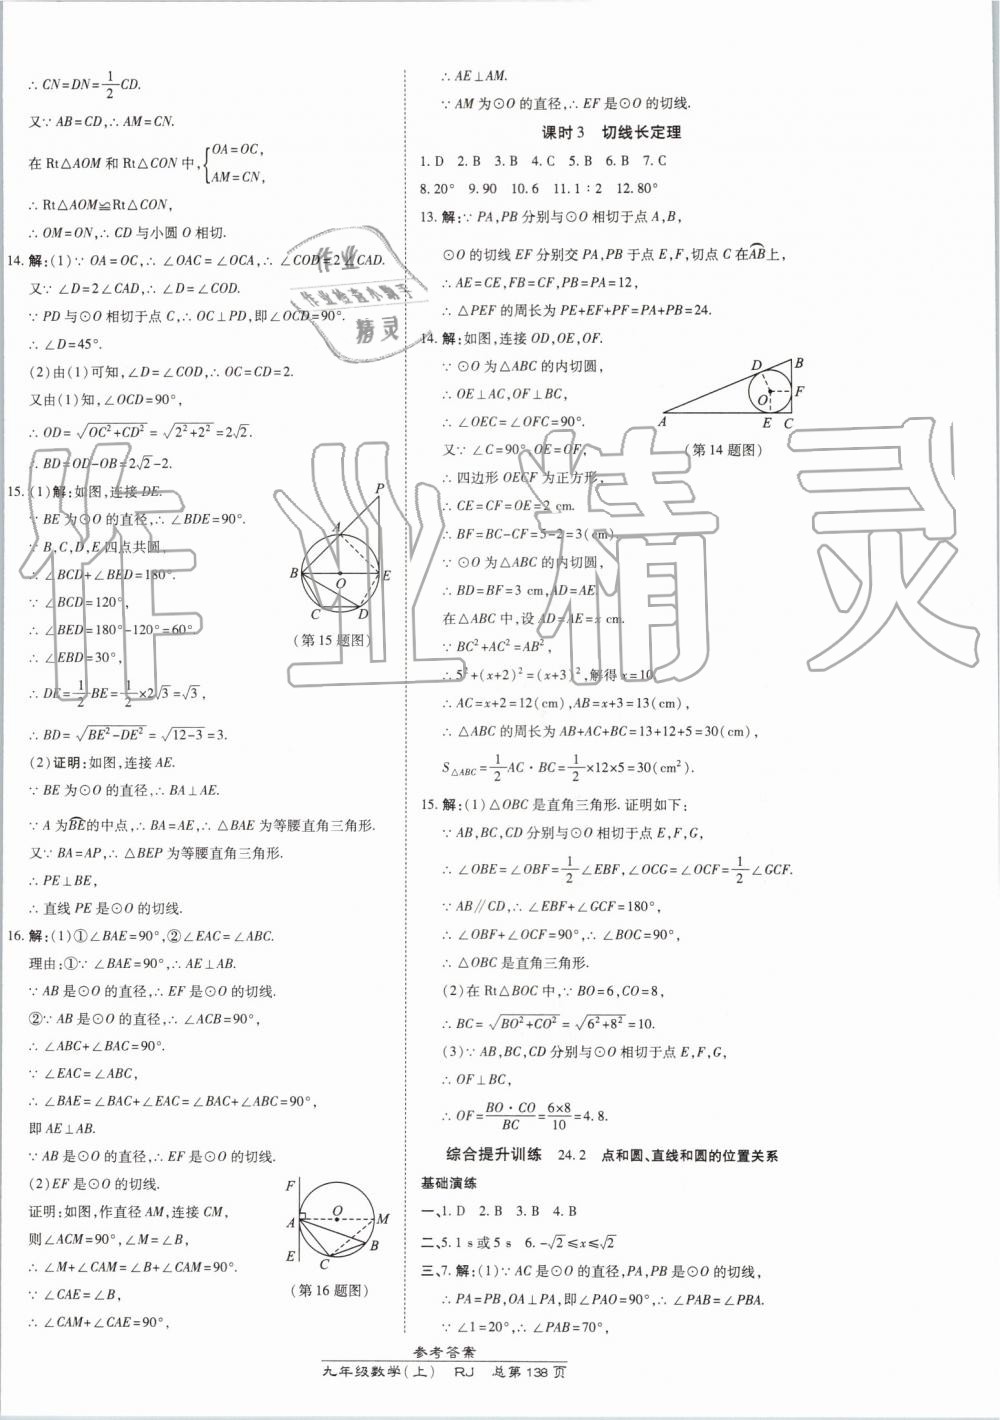 ∴ CN=DN=1/2CD.
又∵ AB=CD,∴ AM=CN.
在 Rt△AOM 和 Rt△CON 中,{OA=OC,
AM=CN,
∴ Rt△AOM≌Rt△CON,
∴ OM=ON,∴ CD 与小圆 O 相切.
14. 解:(1)∵ OA=OC,∴ ∠OAC=∠OCA,∴ ∠COD=2∠CAD.
又∵ ∠D=2∠CAD,∴ ∠D=∠COD.
∵ PD 与⊙O 相切于点 C,∴ OC⊥PD,即∠OCD=90°.
∴ ∠D=45°.
(2)由(1)可知,∠D=∠COD,∴ OC=CD=2.
又由(1)知,∠OCD=90°,
∴ OD=√(OC²+CD²)=√(2²+2²)=2√2.
∴ BD=OD-OB=2√2-2.
15. (1)解:如图,连接 DE.
∵ BE 为⊙O 的直径,∴ ∠BDE=90°.
∵ B,C,D,E 四点共圆,
∴ ∠BCD+∠BED=180°.
∵ ∠BCD=120°,
∴ ∠BED=180°-120°=60°.
∴ ∠EBD=30°,
∴ DE=1/2BE=1/2×2√3=√3,
∴ BD=√(BE²-DE²)=√(12-3)=3.
P
A
B
O
E
C
D
(第 15 题图)
(2)证明:如图,连接 AE.
∵ BE 为⊙O 的直径,∴ BA⊥AE.
∵ A 为B͡E的中点,∴ BA=AE,∴ △BAE 为等腰直角三角形.
又∵ BA=AP,∴ △BEP 为等腰直角三角形.
∴ PE⊥BE,
∴ 直线 PE 是⊙O 的切线.
16. 解:(1)①∠BAE=90°,②∠EAC=∠ABC.
理由:①∵ ∠BAE=90°,∴ AE⊥AB.
∵ AB 是⊙O 的直径,∴ EF 是⊙O 的切线.
②∵ AB 是⊙O 的直径,∴ ∠ACB=90°,
∴ ∠ABC+∠BAC=90°.
∵ ∠EAC=∠ABC,
∴ ∠BAE=∠BAC+∠EAC=∠BAC+∠ABC=90°,
即 AE⊥AB.
∵ AB 是⊙O 的直径,∴ EF 是⊙O 的切线.
(2)EF 是⊙O 的切线.
证明:如图,作直径 AM,连接 CM,
则∠ACM=90°,∠M=∠B,
∴ ∠M+∠CAM=∠B+∠CAM=90°.
∵ ∠CAE=∠B,
∴ ∠CAM+∠CAE=90°,
F
O
A
M
B
E
C
(第 16 题图)
∴ AE⊥AM.
∵ AM 为⊙O 的直径,∴ EF 是⊙O 的切线.
课时 3 切线长定理
1. D 2. B 3. B 4. C 5. B 6. B 7. C
8. 20° 9. 90 10. 6 11. 1∶2 12. 80°
13. 解:∵ PA,PB 分别与⊙O 相切于点 A,B,
⊙O 的切线 EF 分别交 PA,PB 于点 E,F,切点 C 在A͡B上,
∴ AE=CE,FB=CF,PB=PA=12,
∴ △PEF 的周长为 PE+EF+PF=PA+PB=24.
14. 解:如图,连接 OD,OE,OF.
∵ ⊙O 为△ABC 的内切圆,
∴ OE⊥AC,OF⊥BC,
∴ ∠OEC=∠OFC=90°.
又∵ ∠C=90°,OE=OF,
∴ 四边形 OECF 为正方形,
∴ CE=CF=OE=2 cm.
∴ BF=BC-CF=5-2=3(cm).
∵ ⊙O 为△ABC 的内切圆,
∴ BD=BF=3 cm,AD=AE.
在△ABC 中,设 AD=AE=x cm.
∵ BC²+AC²=AB²,
∴ 5²+(x+2)²=(x+3)²,解得 x=10.
∴ AC=x+2=12(cm),AB=x+3=13(cm),
∴ △ABC 的周长为 AB+AC+BC=13+12+5=30(cm),
S△ABC=1/2AC·BC=1/2×12×5=30(cm²).
D
B
O
F
A
E
C
(第 14 题图)
15. 解:(1)△OBC 是直角三角形. 证明如下:
∵ AB,BC,CD 分别与⊙O 相切于点 E,F,G,
∴ ∠OBE=∠OBF=1/2∠EBF,∠OCG=∠OCF=1/2∠GCF.
∵ AB∥CD,∴ ∠EBF+∠GCF=180°,
∴ ∠OBF+∠OCF=90°,∴ ∠BOC=90°,
∴ △OBC 是直角三角形.
(2)在 Rt△BOC 中,∵ BO=6,CO=8,
∴ BC=√(BO²+CO²)=√(6²+8²)=10.
(3)∵ AB,BC,CD 分别与⊙O 相切于点 E,F,G,
∴ OF⊥BC,
∴ OF=BO·CO/BC=6×8/10=4.8.
综合提升训练 24.2 点和圆、直线和圆的位置关系
基础演练
一、1. D 2. B 3. B 4. B
二、5. 1 s 或 5 s 6. -√2≤x≤√2
三、7. 解:(1)∵ AC 是⊙O 的直径,PA,PB 是⊙O 的切线,
∴ PA=PB,OA⊥PA,即∠PAO=90°,∴ ∠PAB=∠PBA.
∵ ∠1=20°,∴ ∠PAB=70°,
参考答案
九年级数学(上) RJ 总第 138 页
作业
作业检查小助手
精灵
作业精灵